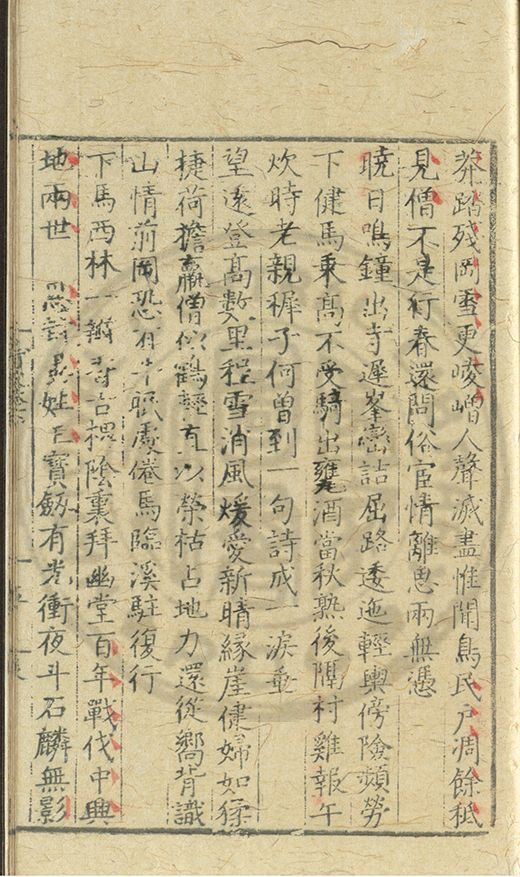 莽踏殘岡雪更崚嶒人聲滅盡惟聞鳥民戶凋餘秪
見僧不是行春還問俗宦情離思兩無憑
曉日鳴鐘出寺遲峯巒詰屈路逶迤輕輿傍險頻勞
下健馬乗髙不受騎出甕酒當秋熟後隔村雞報午
炊時老親穉子何曽到一句詩成一淚垂
望遠登髙數里程雪消風煖愛新晴縁崖健婦如猱
捷荷擔羸僧似鶴輕直以榮枯占地力還從嚮背識
山情前岡恐有平眺處倦馬臨溪駐復行
下馬西林一瓣香古櫬陰裏拜幽堂百年戰伐中興
地兩世王寳劔有光衝夜斗石麟無影